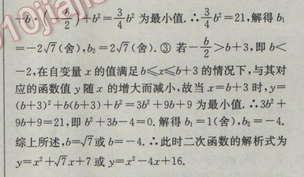 -b·(-b/2)+b²=3/4b² 为最小值.∴3/4b²=21,解得b₁
=-2√7(舍),b₂=2√7(舍).③若-b/2>b+3,即b<
-2,在自变量x的值满足b≤x≤b+3的情况下,与其对
应的函数值y随x的增大而减小,故当x=b+3时,y=
(b+3)²+b(b+3)+b²=3b²+9b+9为最小值.∴3b²+
9b+9=21,即b²+3b-4=0.解得b₁=1(舍),b₂=-4.
综上所述,b=√7或b=-4.∴此时二次函数的解析式为
y=x²+√7x+7或y=x²-4x+16.